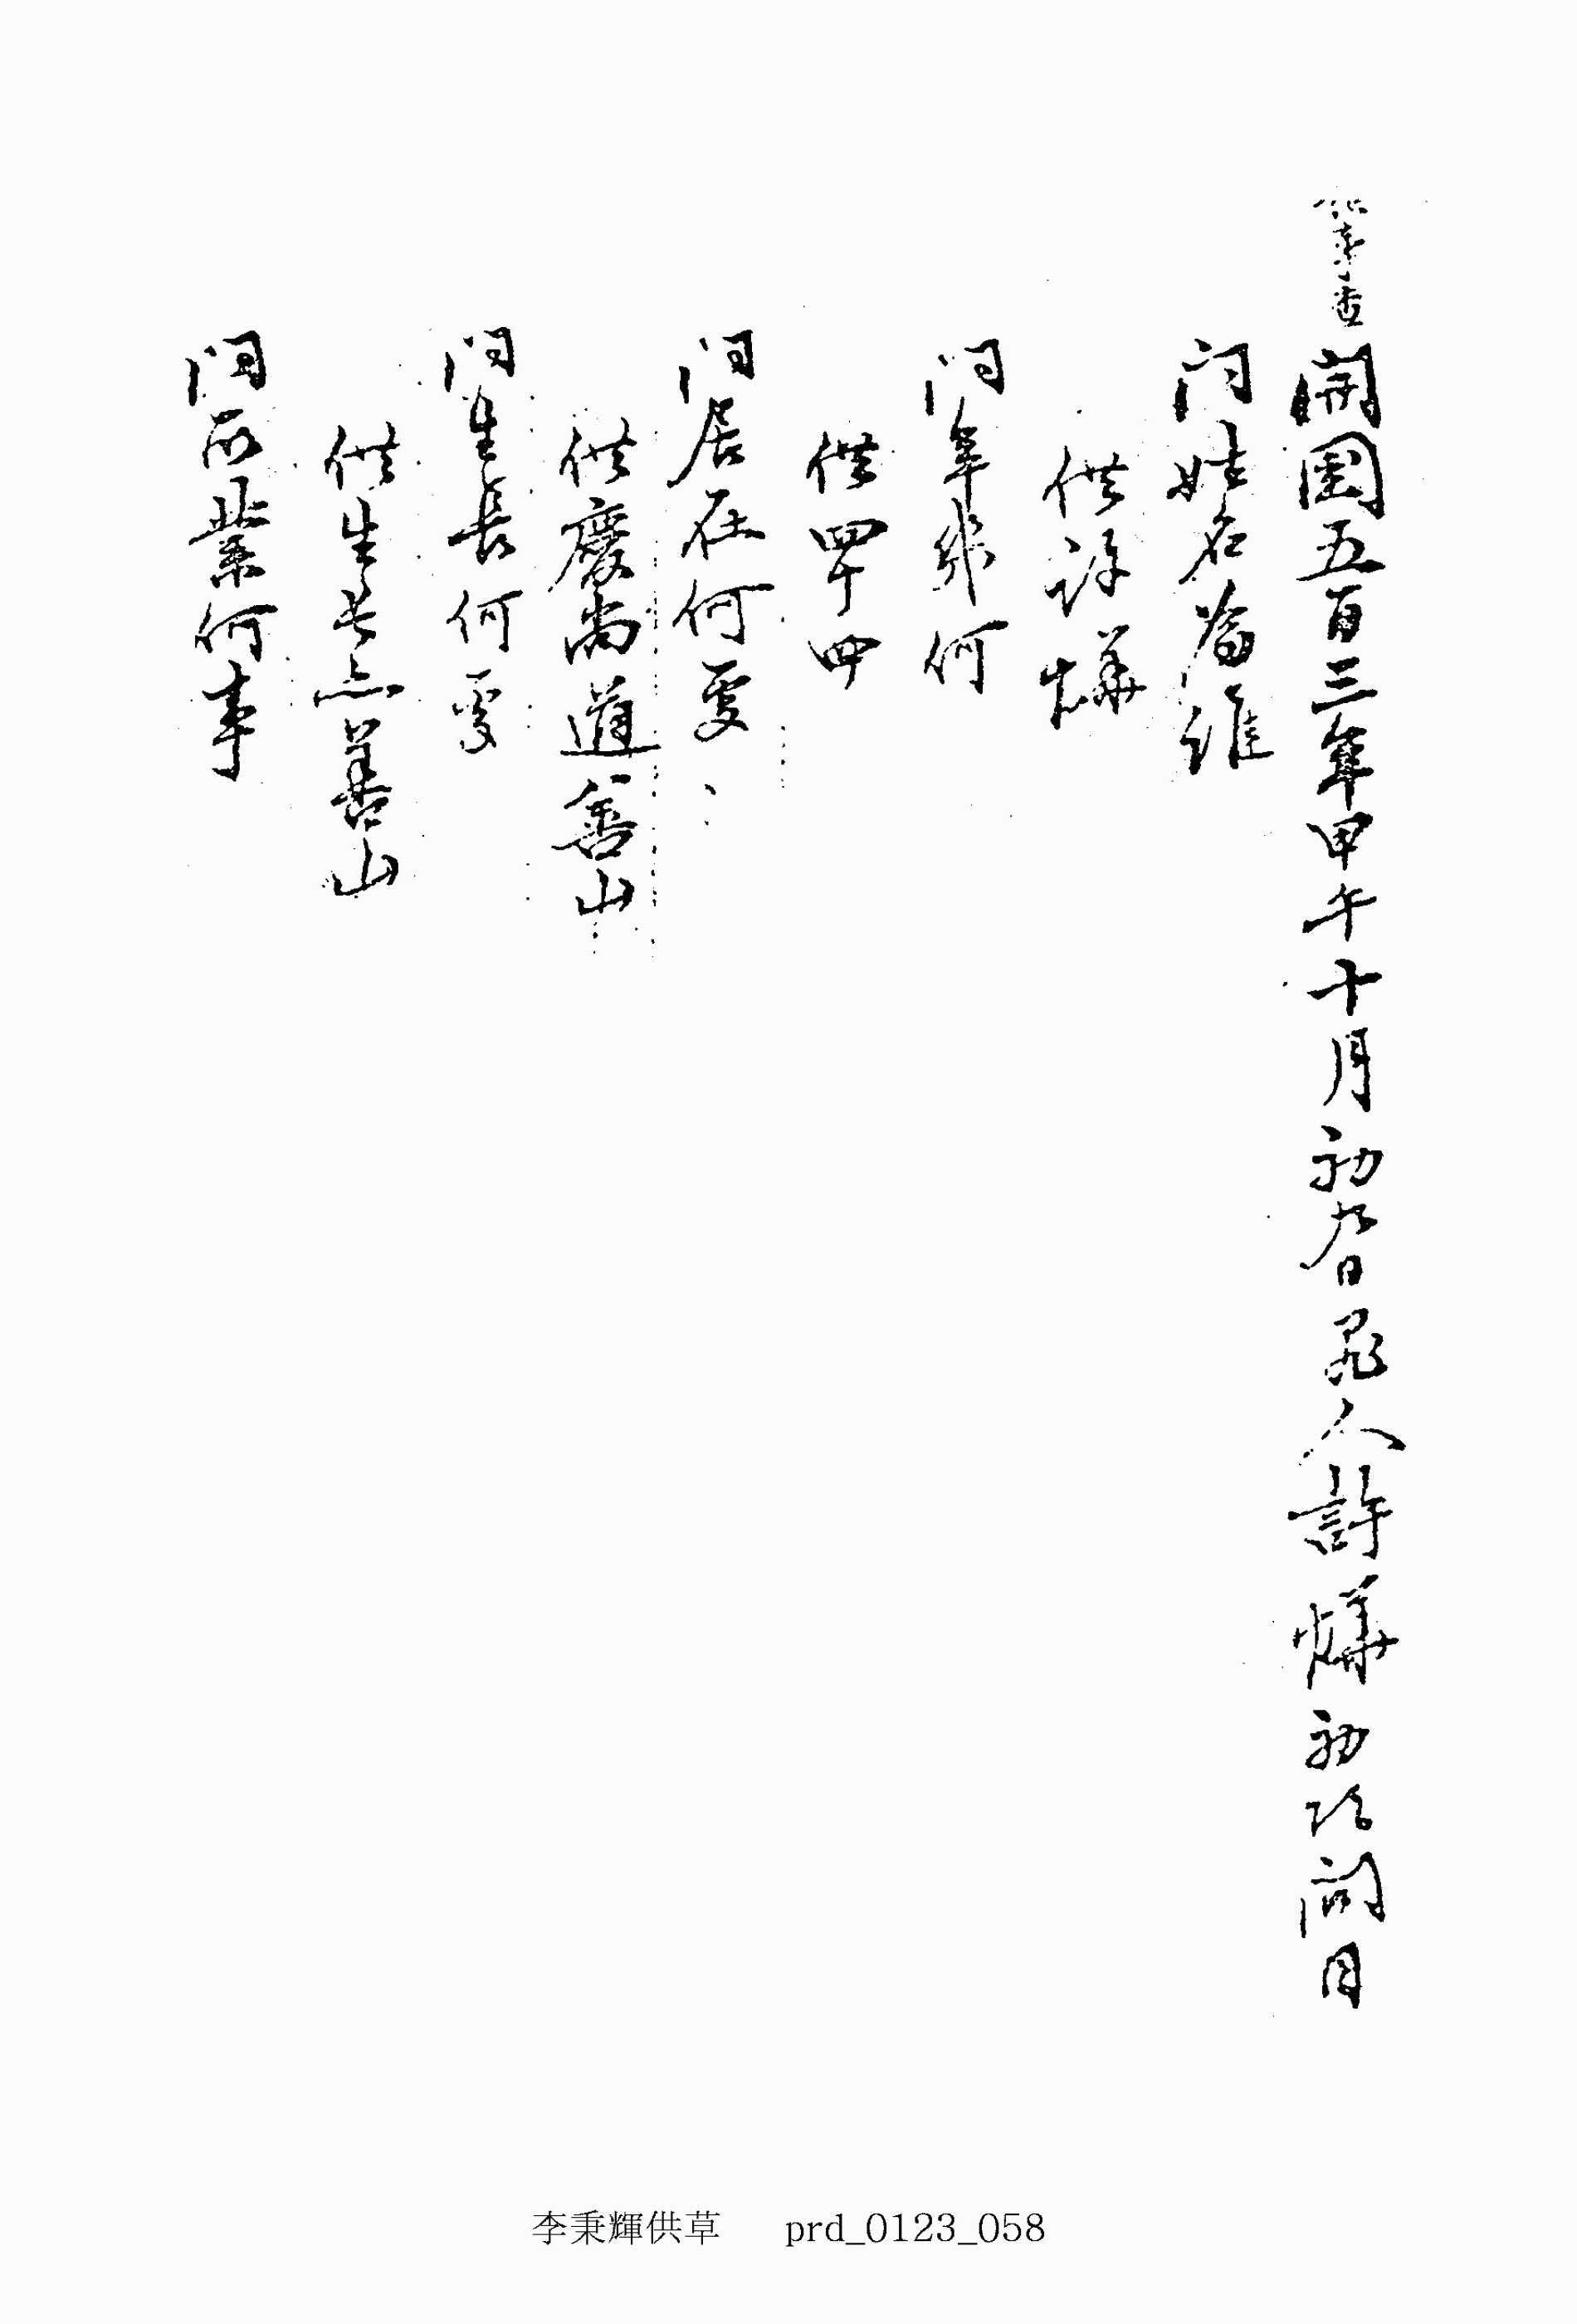 開國五百三年甲午十月初九日罪人許燁初次問目
问姓名爲誰
供許燁
问年幾何
供四十四
问居在何處
供慶尙道善山
问生長何處
供生長亦善山
问所業何事
李秉輝供草 prd_0123_058